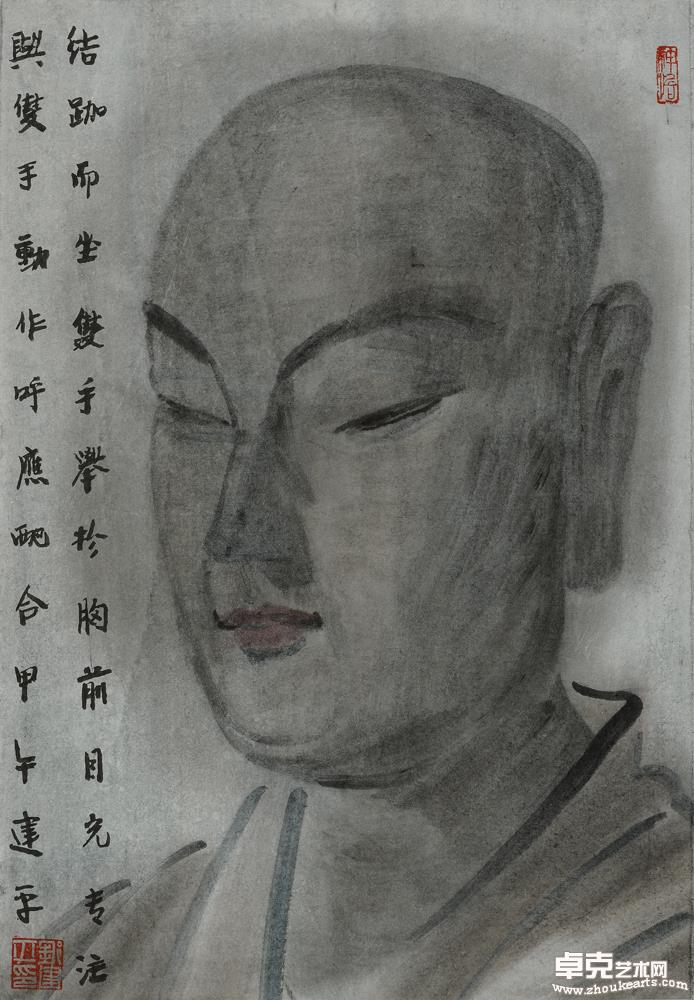 結跏而坐雙手舉於胸前目光专注
與雙手動作呼應配合甲午建平
卓克艺术网
www.zhoukearts.com